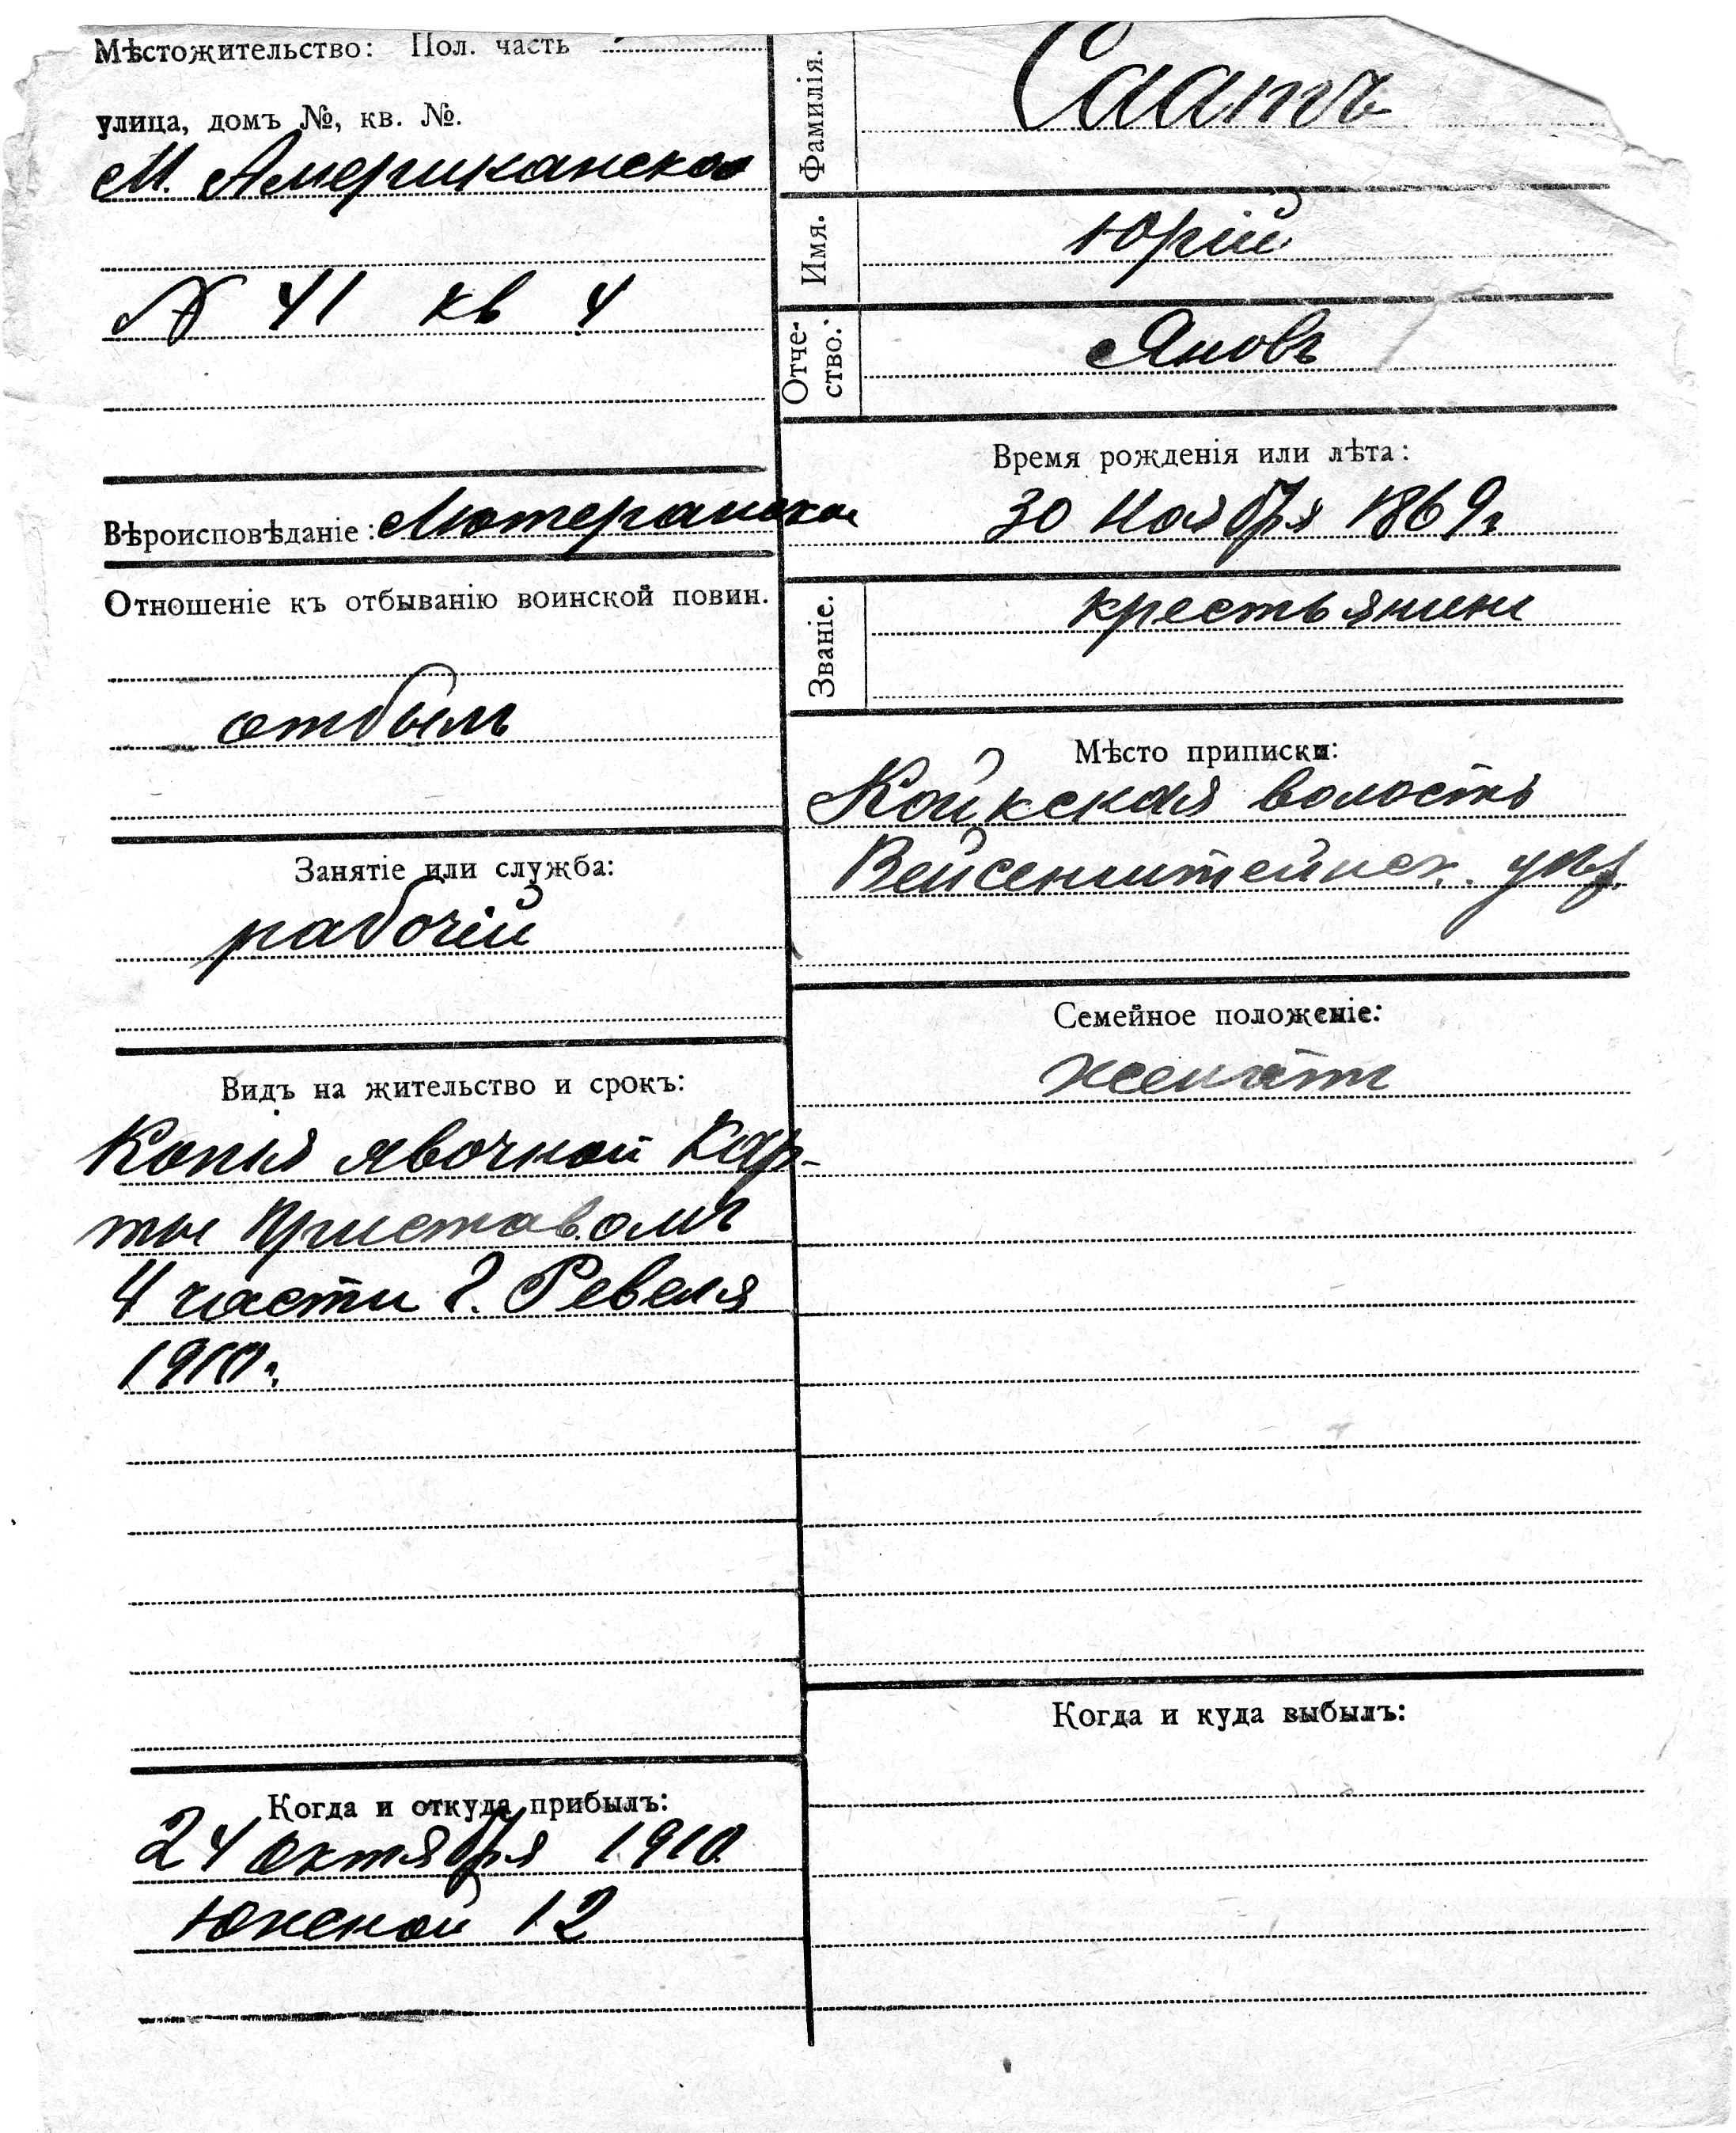 Мѣстожительство: Пол. часть
улица, домъ №, кв. №.
М. Американская
№ 41 кв 4
Вѣроисповѣданіе: Лютеранское
Отношеніе къ отбыванію воинской повин.
отбылъ
Занятіе или служба:
рабочій
Видъ на жительство и срокъ:
Копія явочной кар-
ты Приставомъ
4 части г. Ревеля
1910г.
Когда и откуда прибылъ:
24 октября 1910
Южной 12
Фамилія.
Саатъ
Имя.
Юрій
Отче-
ство.
Яновъ
Время рожденія или лѣта:
30 Ноября 1869г
Званіе.
крестьянинъ
Мѣсто приписки:
Койкская волость
Вейсенштейнск. уѣз.
Семейное положеніе:
женатъ
Когда и куда выбылъ: